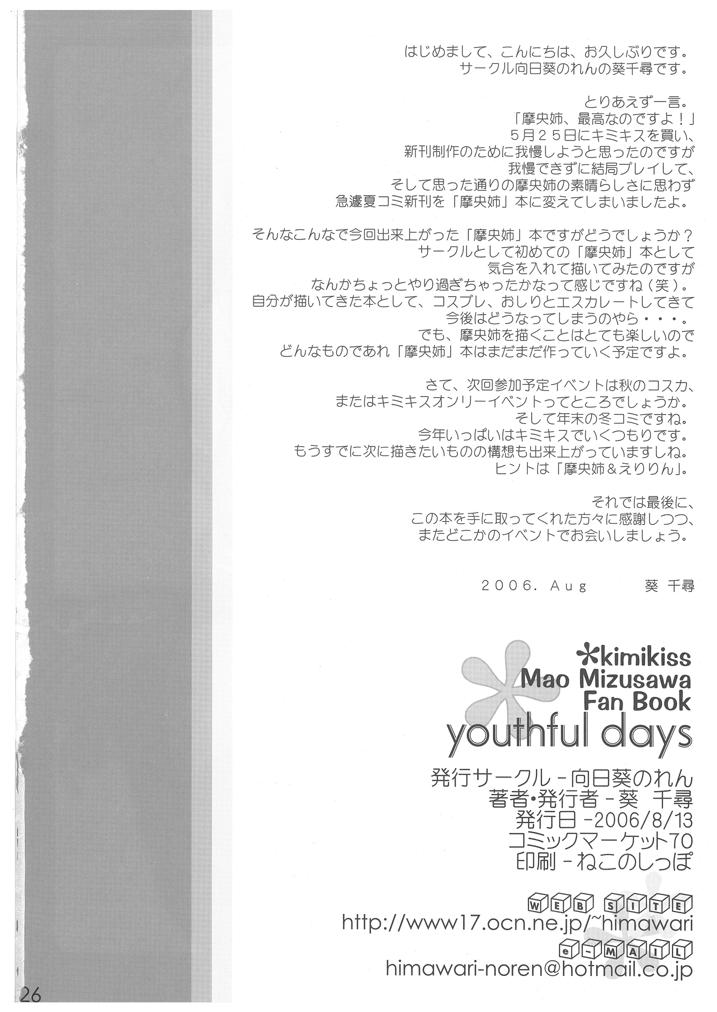 はじめまして、こんにちは、お久しぶりです。
サークル向日葵のれんの葵千尋です。
とりあえず一言。
「摩央姉、最高なのですよ！」
５月２５日にキミキスを買い、
新刊制作のために我慢しようと思ったのですが
我慢できずに結局プレイして、
そして思った通りの摩央姉の素晴らしさに思わず
急遽夏コミ新刊を「摩央姉」本に変えてしまいましたよ。
そんなこんなで今回出来上がった「摩央姉」本ですがどうでしょうか？
サークルとして初めての「摩央姉」本として
気合を入れて描いてみたのですが
なんかちょっとやり過ぎちゃったかなって感じですね（笑）。
自分が描いてきた本として、コスプレ、おしりとエスカレートしてきて
今後はどうなってしまうのやら・・・。
でも、摩央姉を描くことはとても楽しいので
どんなものであれ「摩央姉」本はまだまだ作っていく予定ですよ。
さて、次回参加予定イベントは秋のコスカ、
またはキミキスオンリーイベントってところでしょうか。
そして年末の冬コミですね。
今年いっぱいはキミキスでいくつもりです。
もうすでに次に描きたいものの構想も出来上がっていますしね。
ヒントは「摩央姉＆えりりん」。
それでは最後に、
この本を手に取ってくれた方々に感謝しつつ、
またどこかのイベントでお会いしましょう。
２００６．Ａｕｇ　葵 千尋
*kimikiss
Mao Mizusawa
Fan Book
youthful days
発行サークル－向日葵のれん
著者・発行者－葵 千尋
発行日－2006/8/13
コミックマーケット70
印刷－ねこのしっぽ
WEB SITE
http://www17.ocn.ne.jp/~himawari
e-MAIL
himawari-noren@hotmail.co.jp
26